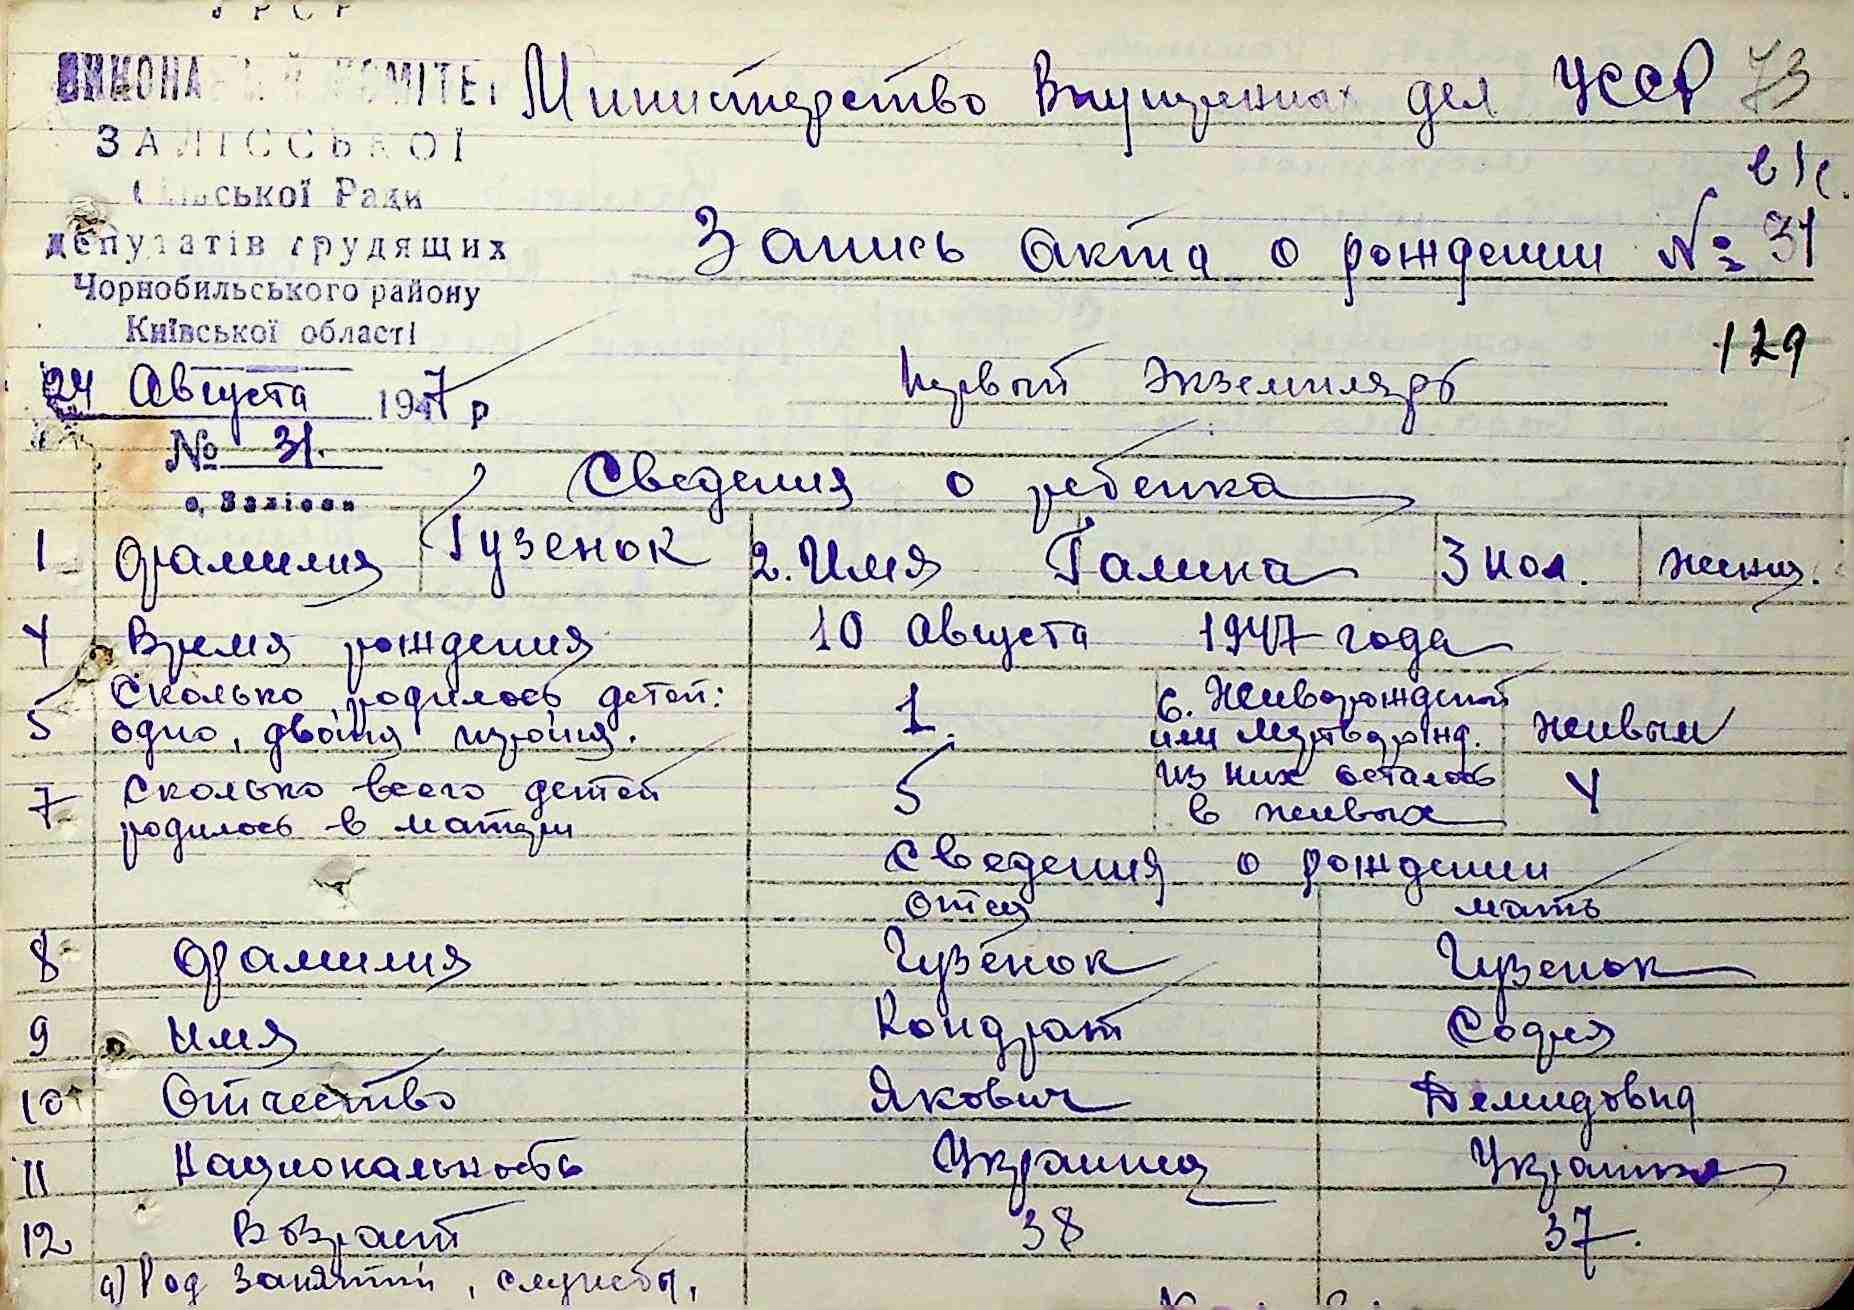 УРСР
ВИКОНАВЧИЙ КОМІТЕТ
ЗАЛІССЬКОЇ
Сільської Ради
депутатів трудящих
Чорнобильського району
Київської області
24 Августа 1947 р
№ 31.
с. Залісся
Министерство Внутренних дел УССР 73
в/с.
Запись акта о рождении № 31
129
Первый Экземпляръ
Сведения о ребенка
1 Фамилия Гузенок 2. Имя Галина 3 пол. женщ.
4 Время рождения 10 Августа 1947 года
5 Сколько родилось детей: одно, двойня тройня. 1. 6. Живорожденой или мертворожд. живым
7 Сколько всего детей родилось в матери 5 из них осталось в живых 4
Сведения о рождении
отец мать
8 Фамилия Гузенок Гузенок
9 Имя Кондрат София
10 Отчество Якович Демидовна
11 Национальность Украинец Украинка
12 Возраст 38 37.
а) Род занятий, службы,